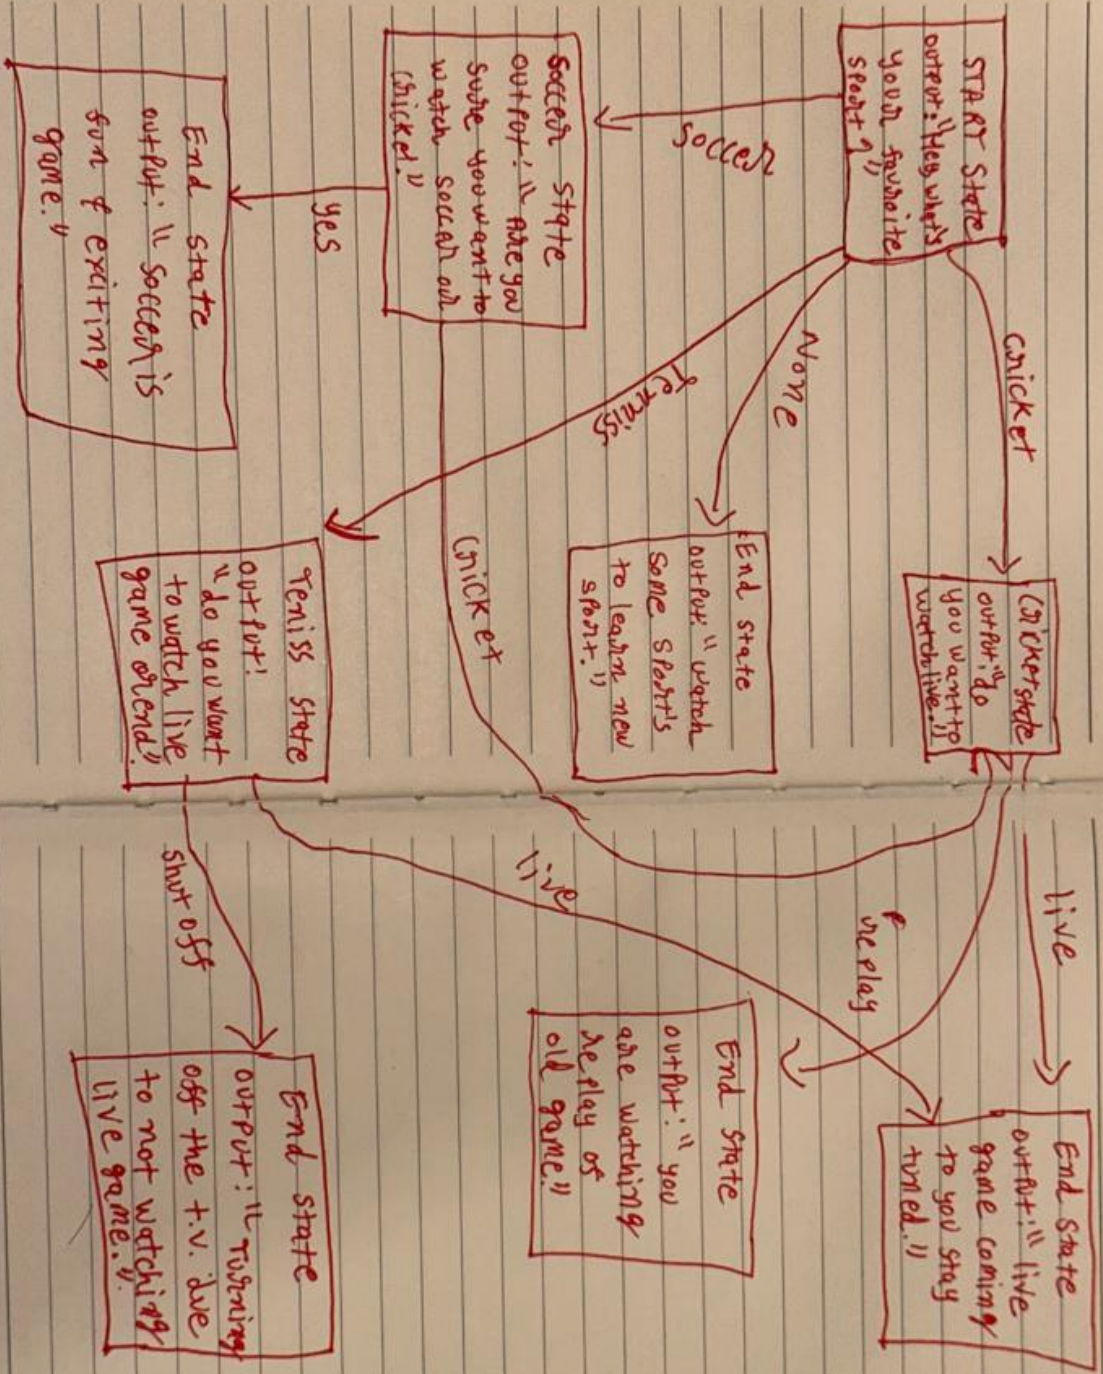 START State
output: "Hey, what's
your favroite
sport?"
cricket
None
Tenniss
soccer
Cricket state
output: "do
you want to
watch live."
live
replay
End state
output: "live
game coming
to you stay
tuned."
soccer state
output: "Are you
sure you want to
watch soccar our
cricket."
yes
cricket
End state
output: "watch
some sport's
to learn new
sport."
End state
output: "you
are watching
replay of
old game."
End state
output: "soccer is
fun & exciting
game."
Teniss state
output:
"do you want
to watch live
game or end".
live
shut off
End state
output: "Turning
off the t.v. due
to not watching
live game."